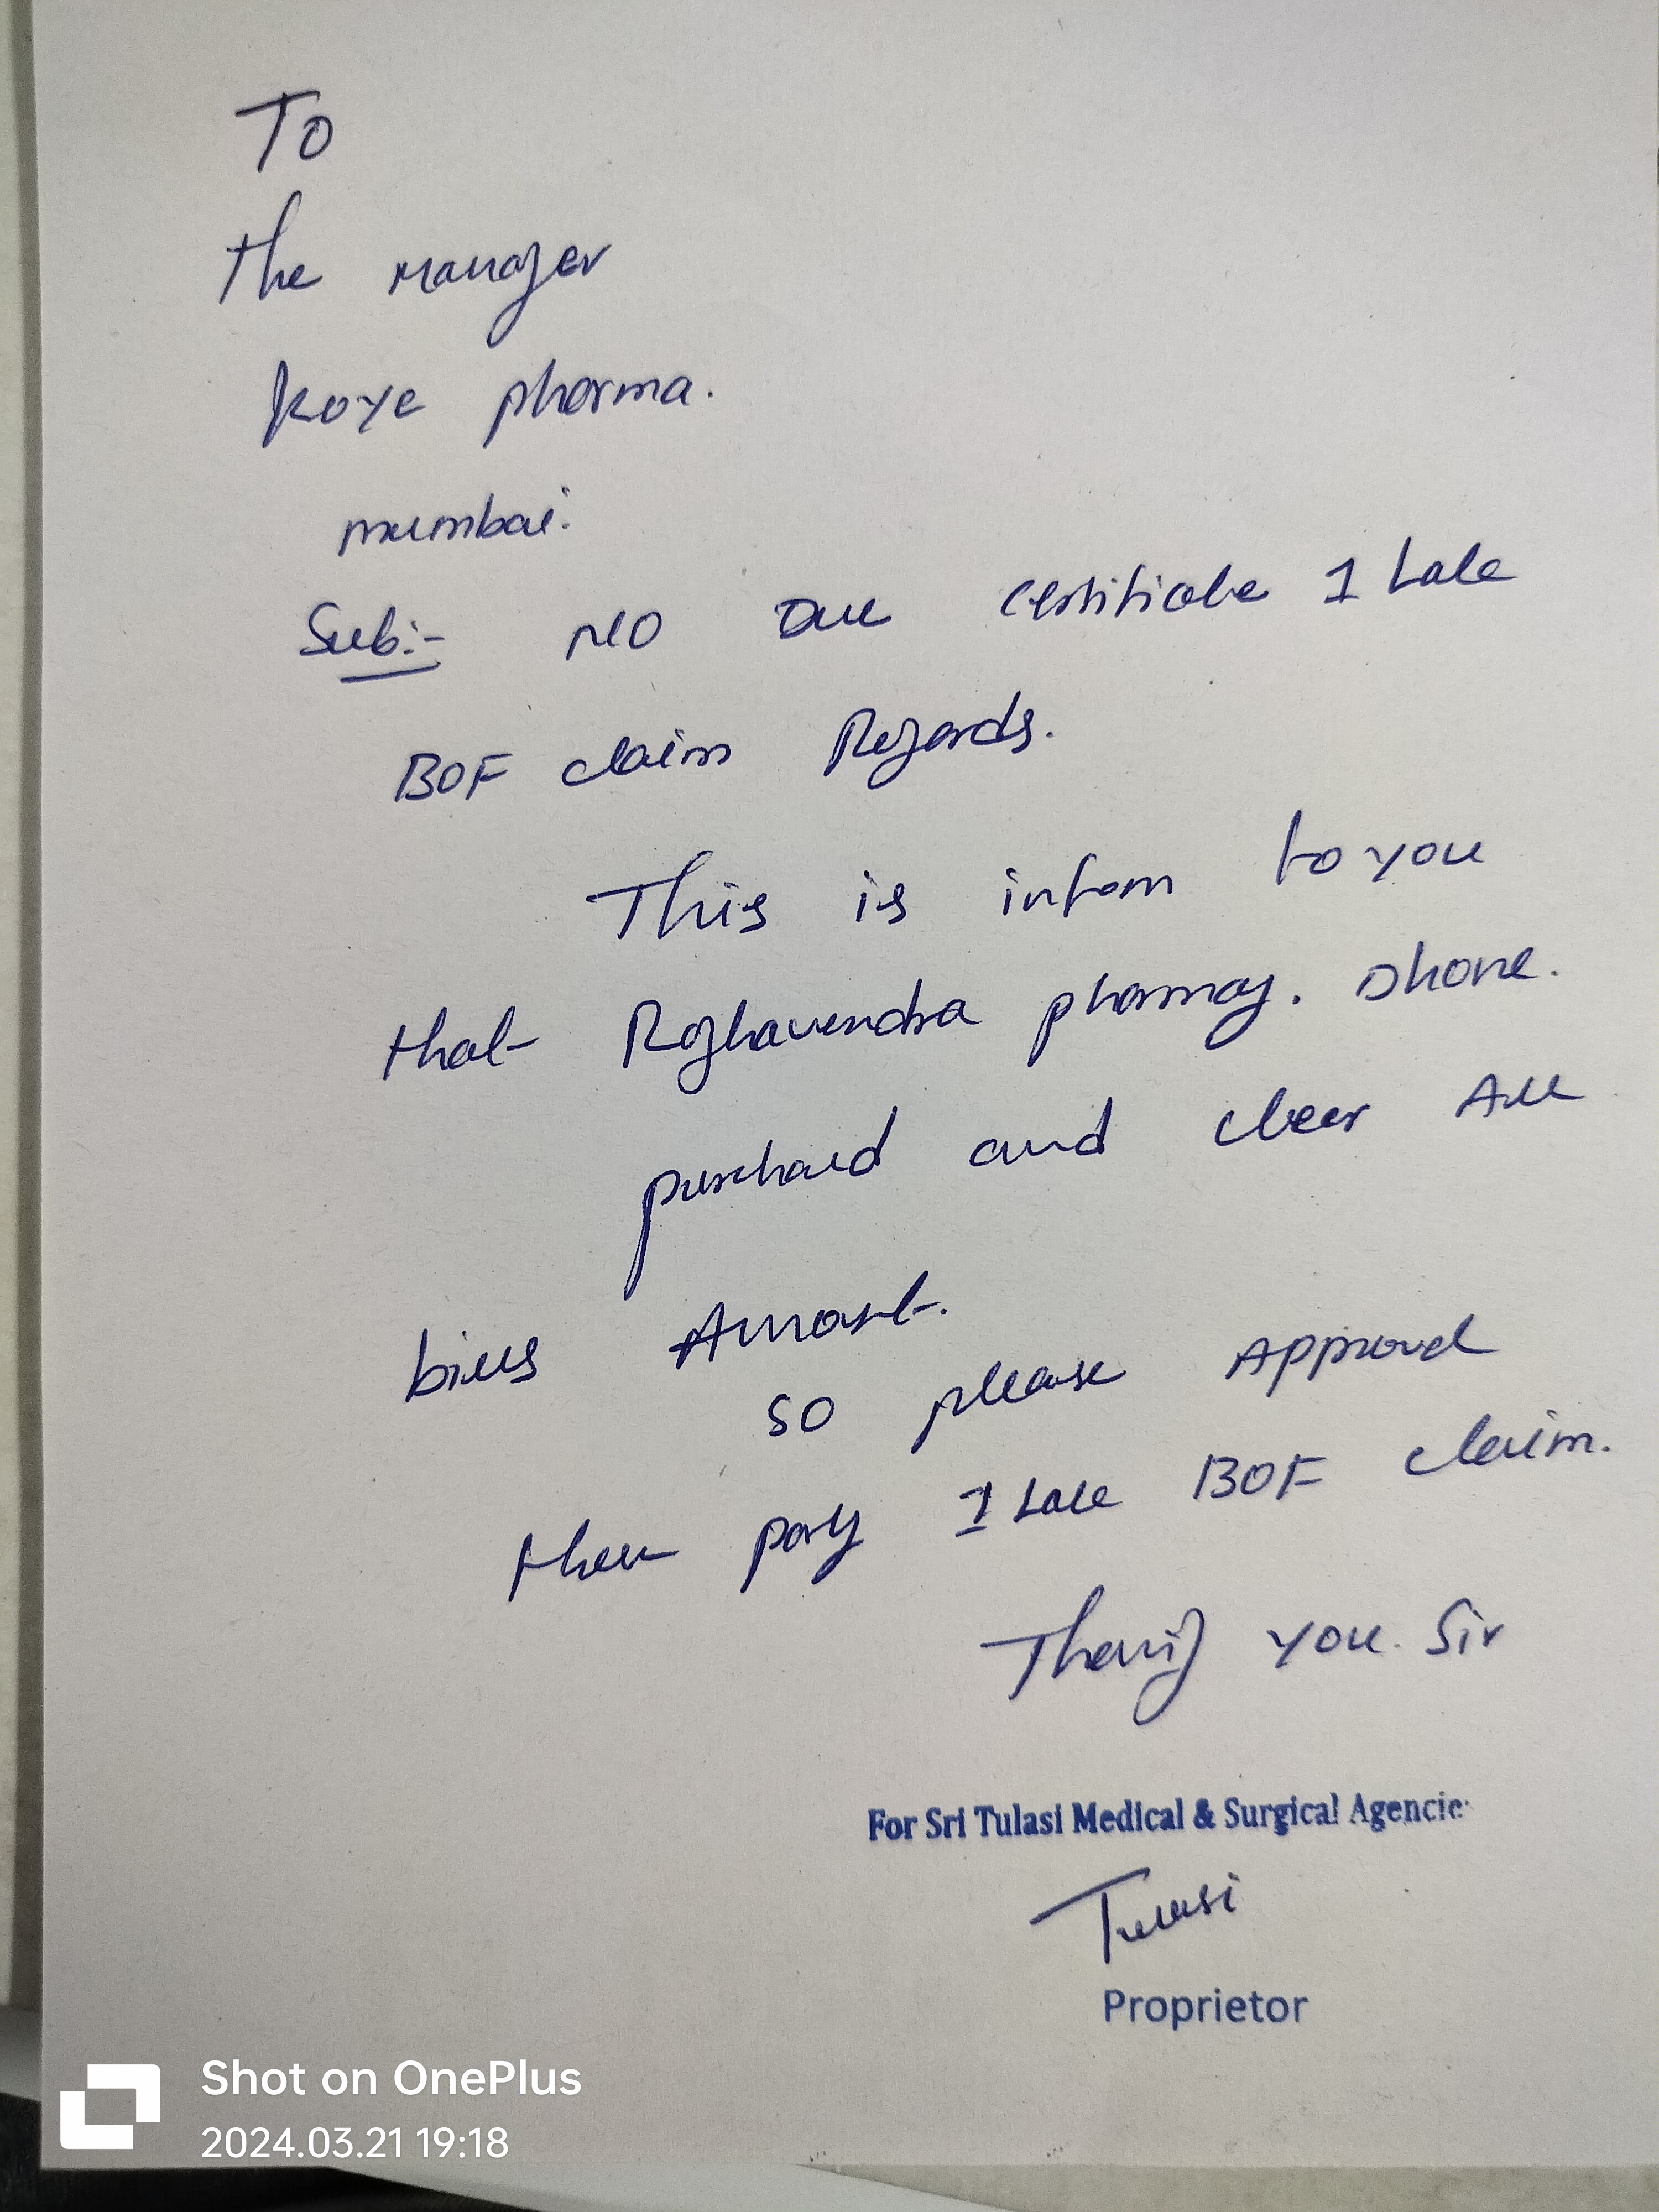 To
the manager
Koye pharma.
mumbai.
Sub:- NO Due certificate 1 Lake
BOF claim Regards.
This is inform to you
that Raghavendra pharmay. Dhone.
purchased and clear All
bills Amount.
so please Approved
then party 1 Lake BOF claim.
Thank you Sir
For Sri Tulasi Medical & Surgical Agencies
Tulasi
Proprietor
Shot on OnePlus
2024.03.21 19:18